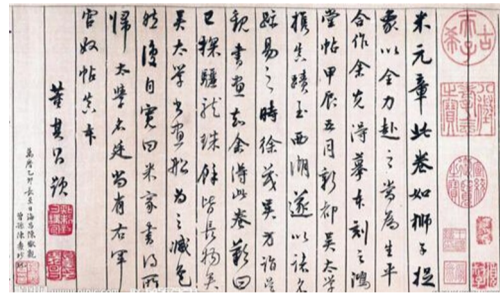 古希天子
米元章此卷如獅子捉
象以全力赴之當為生平
合作余先得摹本刻之鴻
堂帖甲辰五月新都吳太學
攜真蹟至西湖遂以諸名
跡易之時徐茂吳方詣吳
觀書畫知余得此卷歎曰
已探驪龍珠餘皆長物矣
吳太學書畫船為之減色
然復自寬曰米家書得所
歸太學名廷尚有右軍
官奴帖真本
董其昌題
萬曆乙卯長至日海昌陳